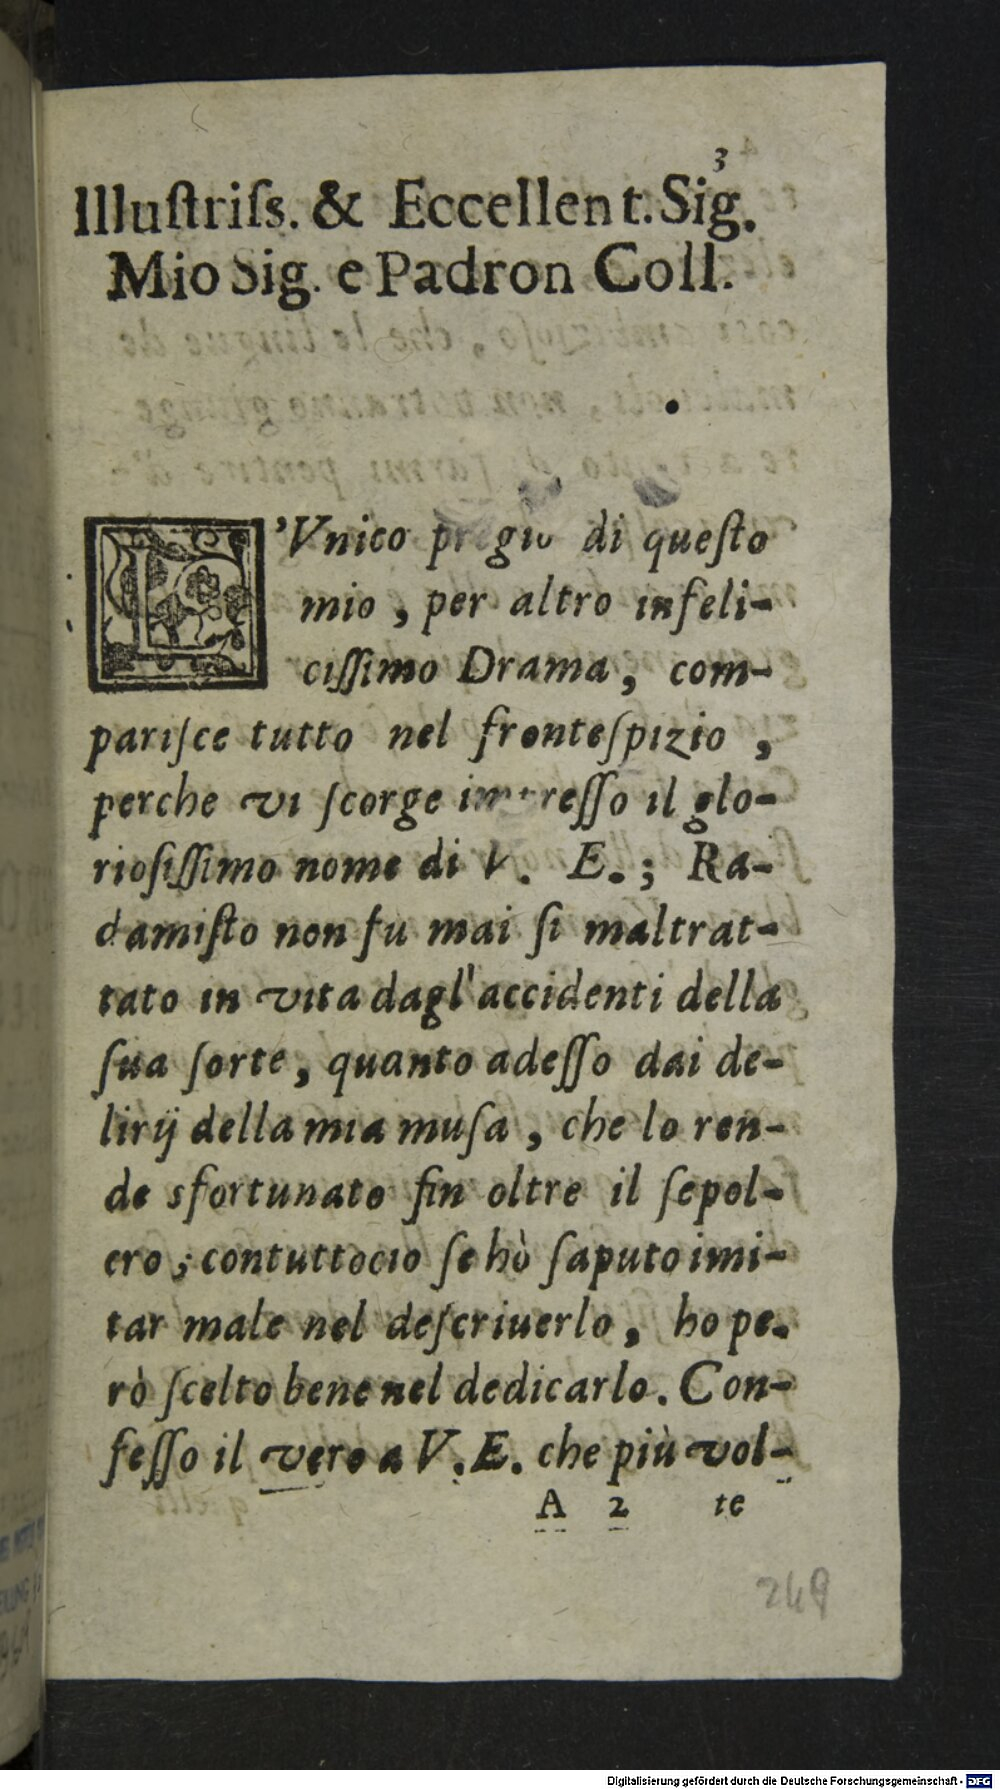 3
Illuſtriſs. & Eccellent. Sig.
Mio Sig. e Padron Coll.
L'Vnico pregio di queſto
mio, per altro infeli-
ciſſimo Drama, com-
pariſce tutto nel fronteſpizio,
perche vi ſcorge impreſſo il glo-
rioſiſſimo nome di V. E.; Ra-
damiſto non fu mai ſi maltrat-
tato in vita dagl'accidenti della
ſua ſorte, quanto adeſſo dai de-
lirij della mia muſa, che lo ren-
de sfortunato fin oltre il ſepol-
cro; contuttocio ſe hò ſaputo imi-
tar male nel deſcriuerlo, ho pe-
rò ſcelto bene nel dedicarlo. Con-
feſſo il vero a V. E. che più vol-
A 2 te
249
Digitalisierung gefördert durch die Deutsche Forschungsgemeinschaft - DFG